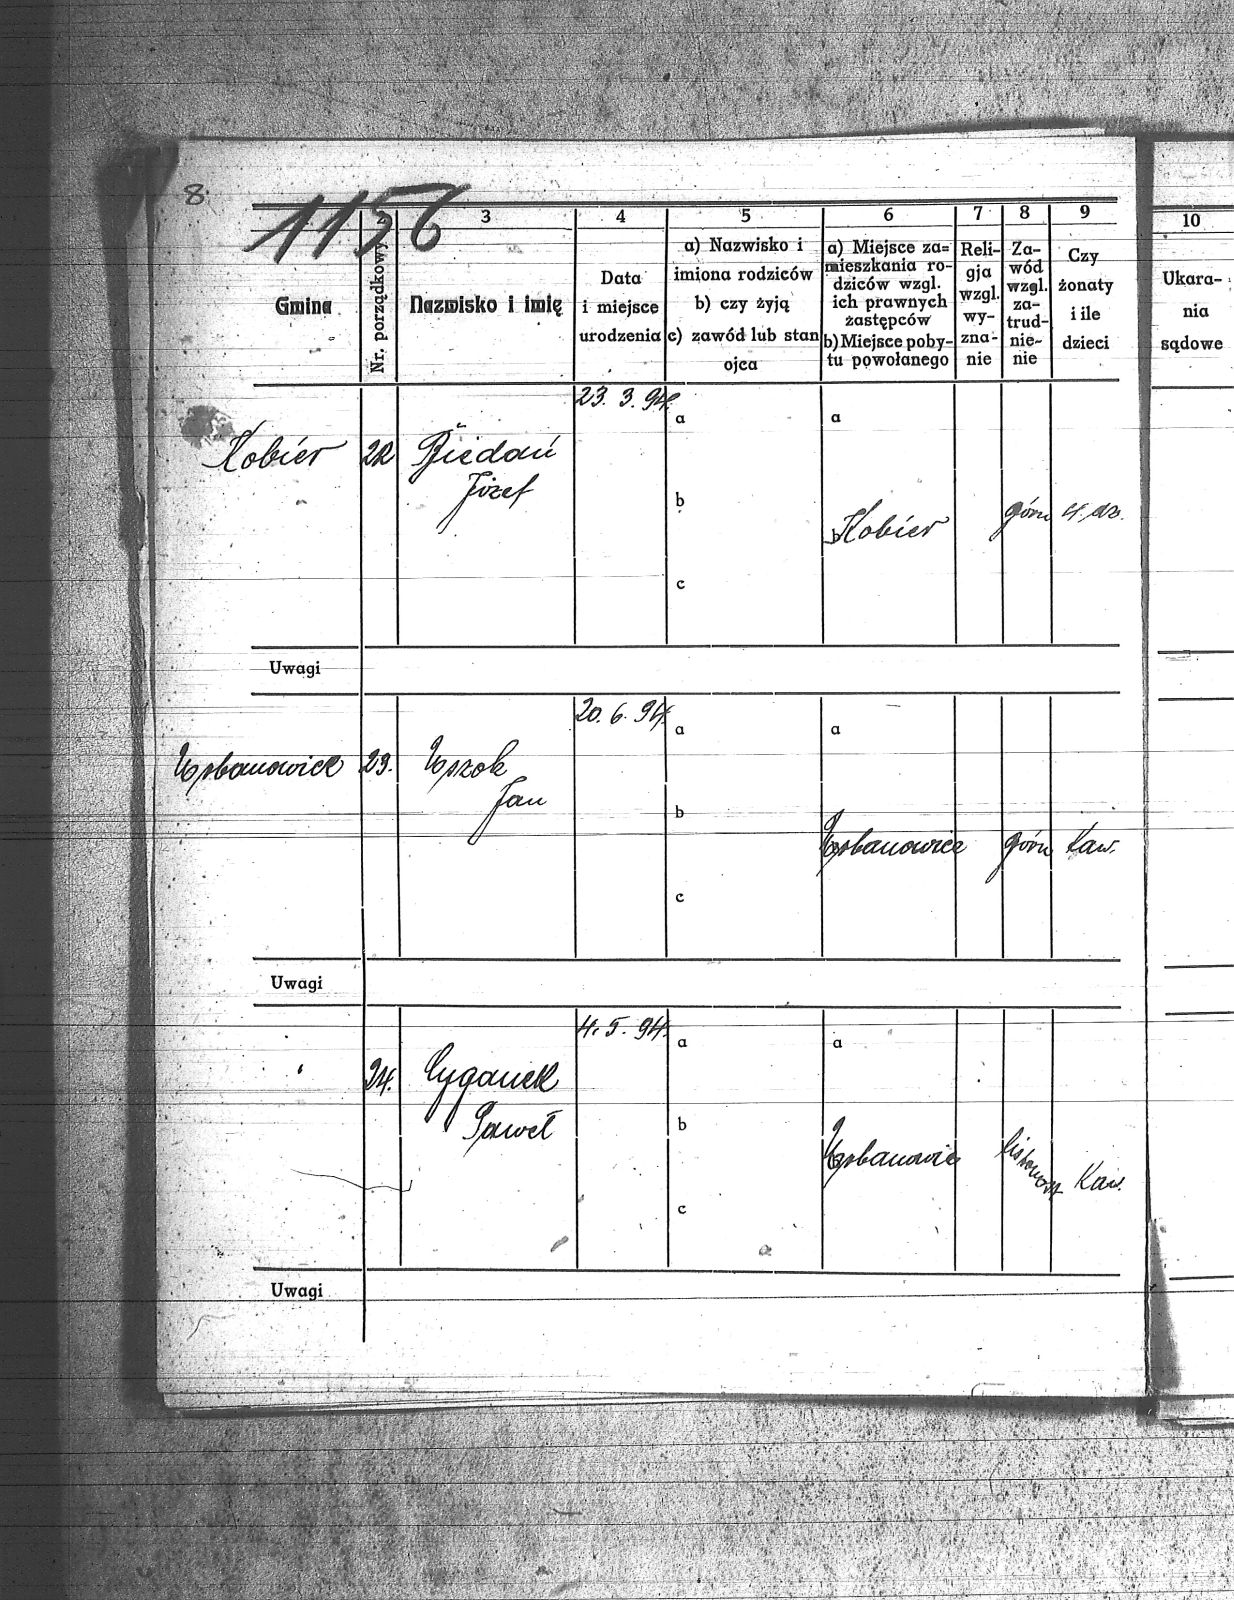 8
1156
3 4 5 6 7 8 9 10
Gmina
Nr. porządkowy
Nazwisko i imię
Data
i miejsce
urodzenia
a) Nazwisko i
imiona rodziców
b) czy żyją
c) zawód lub stan
ojca
a) Miejsce za=
mieszkania ro-
dziców wzgl.
ich prawnych
zastępców
b) Miejsce poby-
tu powołanego
Reli-
gja
wzgl.
wy-
zna-
nie
Za-
wód
wzgl.
za-
trud-
nie-
nie
Czy
żonaty
i ile
dzieci
Ukara-
nia
sądowe
23. 3. 94.
a a
Kobiér 22 Biedań
Józef
b
Kobiér górn 4 dz.
c
Uwagi
20. 6. 94.
a a
Urbanowice 23. Uszok
Jan
b
Urbanowice górn Kaw.
c
Uwagi
4. 5. 94.
a a
24. Cyganek
Paweł
b
Urbanowic listonosz Kaw.
c
Uwagi